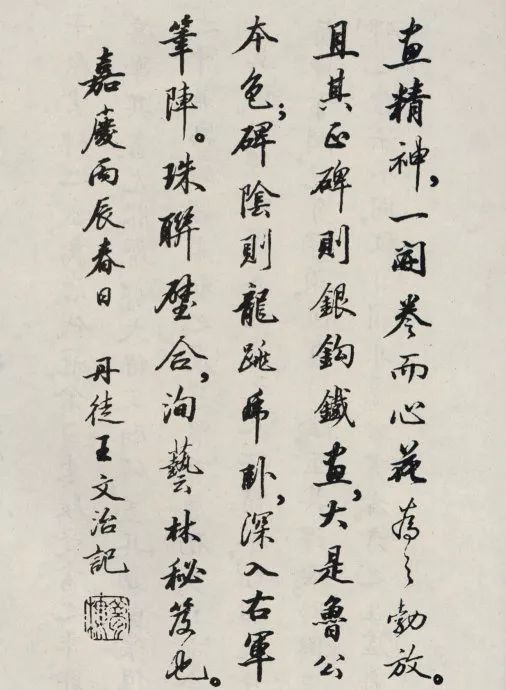 画精神，一開卷而心花為之勃放。
且其正碑則銀鈎鐵画，大是魯公
本色；碑陰則龍跳乕卧，深入右軍
筆陣。珠聯璧合，洵藝林秘笈也。
嘉慶丙辰春日 丹徒王文治記